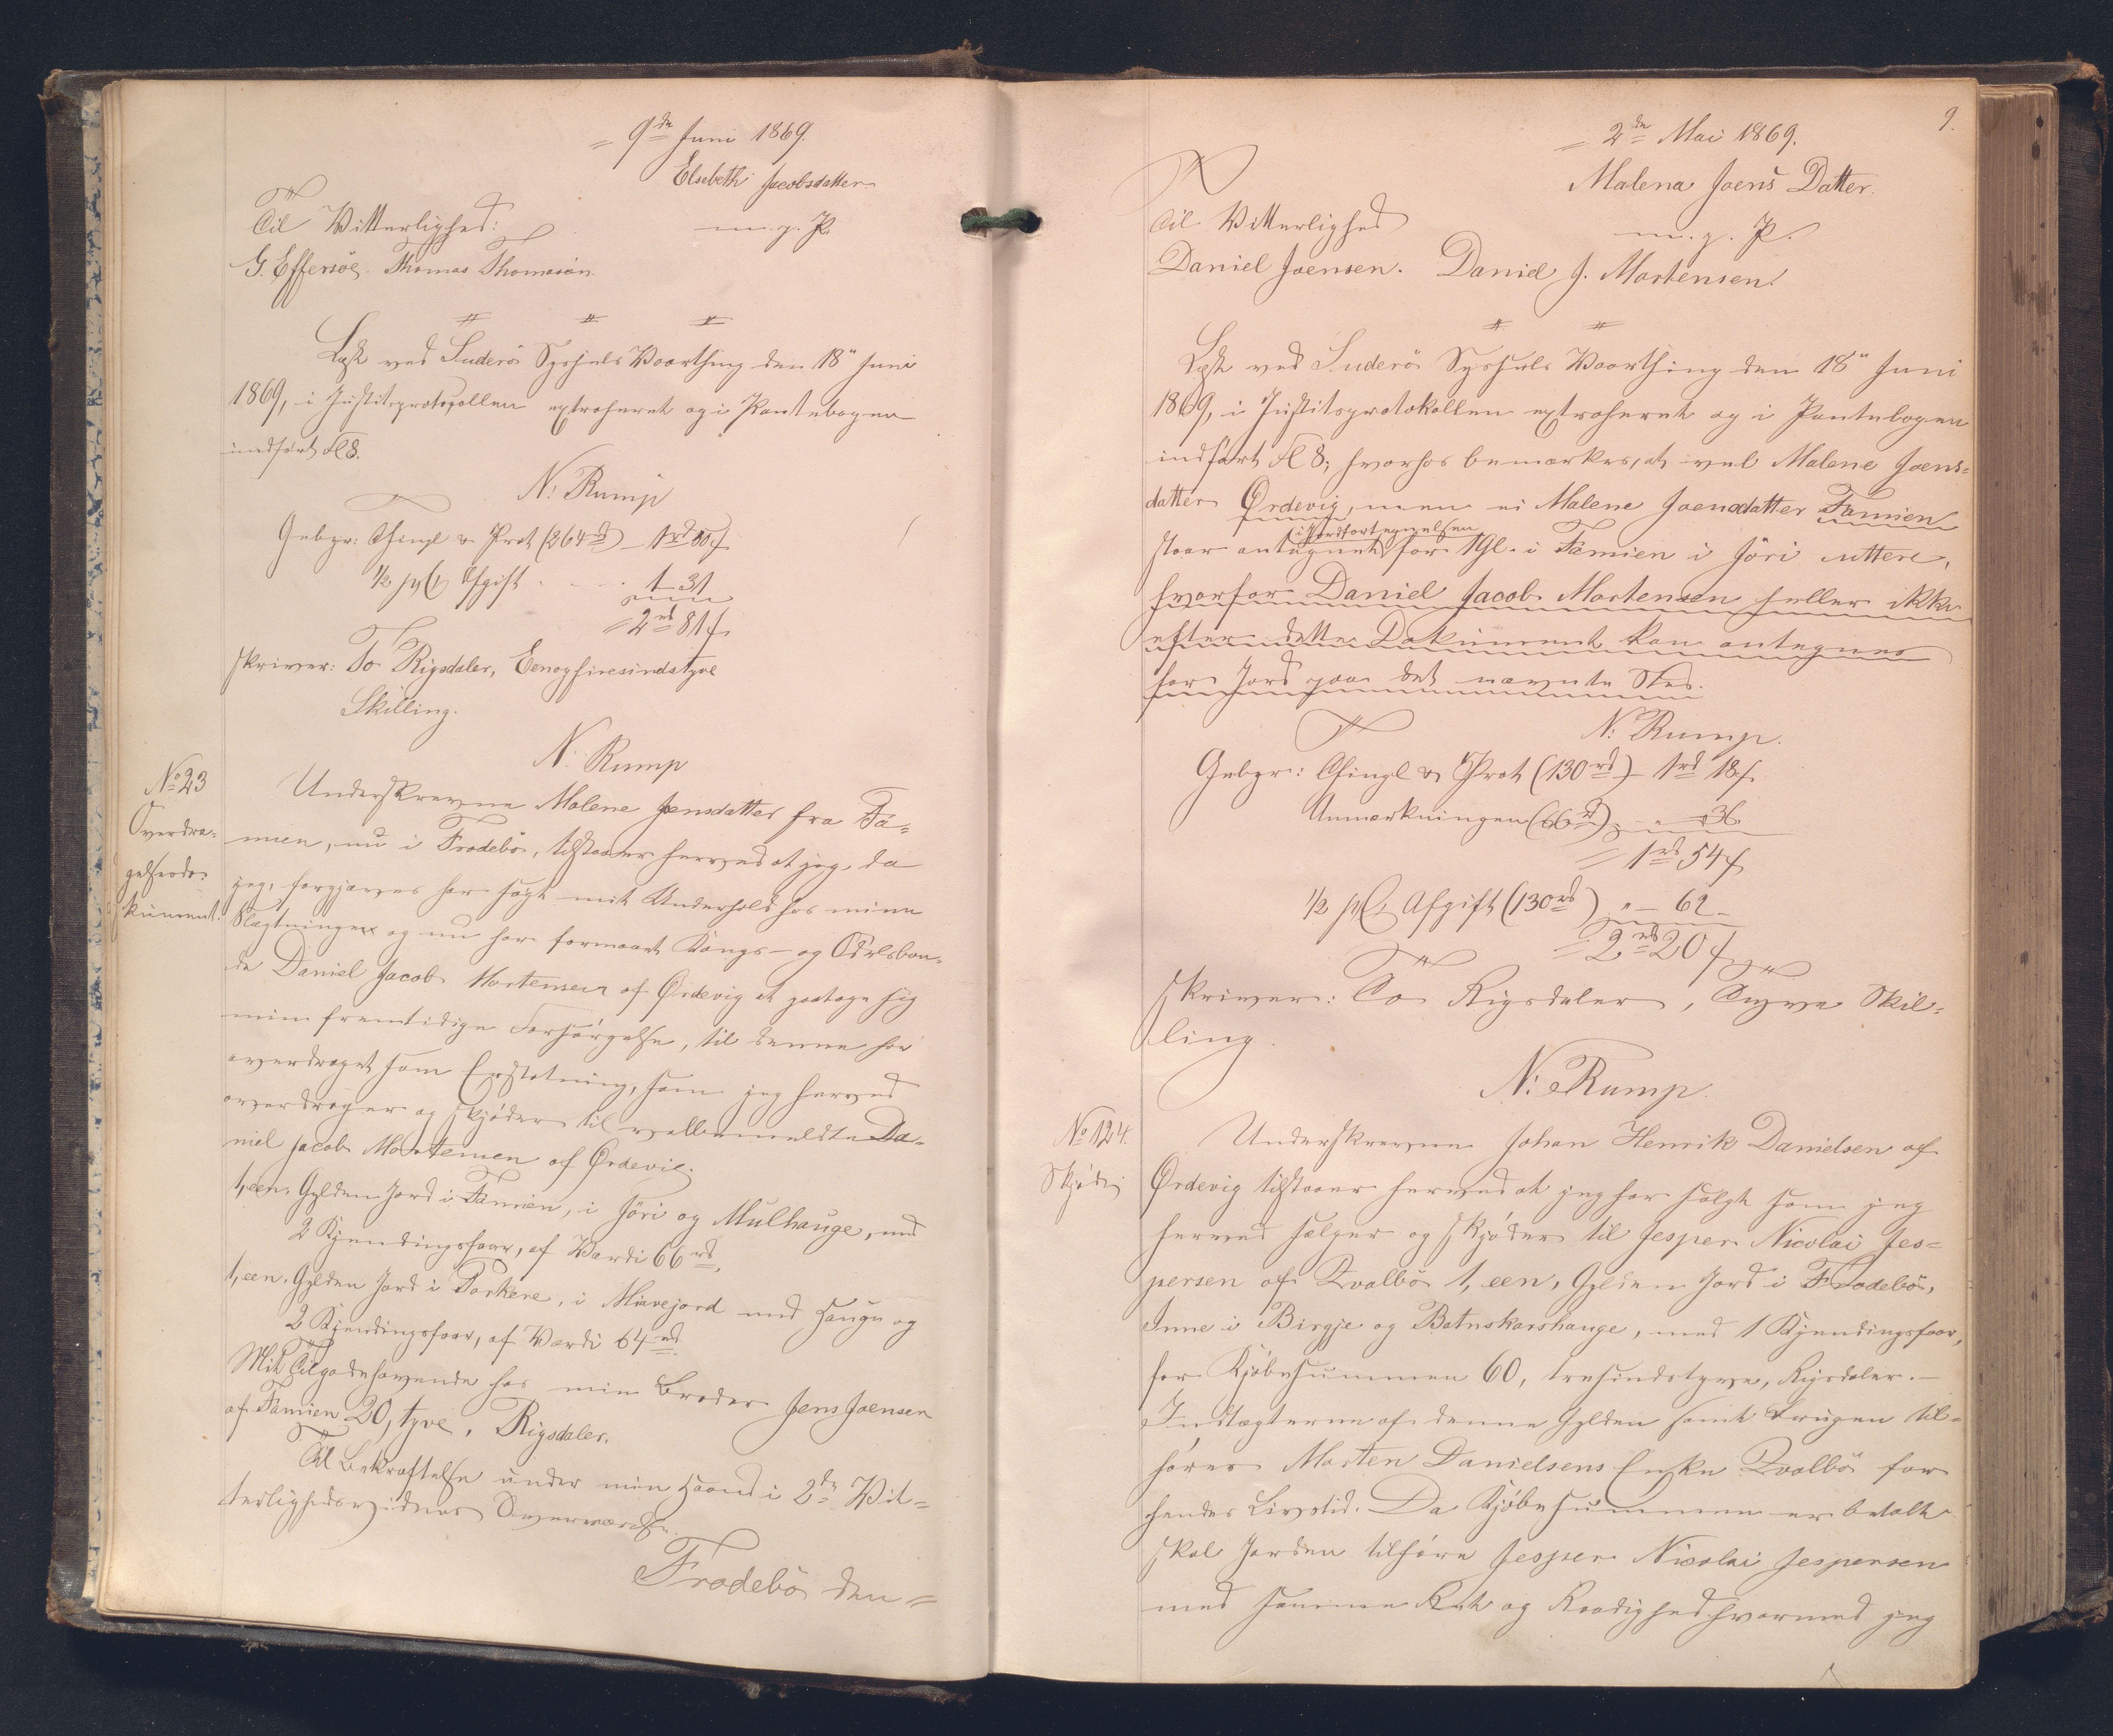 = 9de Juni 1869.
Elsebeth Jacobsdatter
Til Vitterlighed:
m. g. P.
G. Effersøe. Thomas Thomasen.
Læst ved Suderö Syssels Vaarthing den 18" Juni
1869, i Justitsprotocollen extraheret og i Pantebogen
indført Fol 8.
N. Rump
Gebyr: Thingl & Prot (264 rd) - 1 rd 50 s
1/2 pCt Afgift . . . . 1 - 31
= 2 rd 81 s.
skriver: To Rigsdaler, Eenogfiresindstyve
Skilling.
N. Rump
No 23
Overdra-
gelsesdo-
kument.
Underskrevne Malene Joensdatter fra Fa-
mien, nu i Frodebö, tilstaaer herved at jeg, da
jeg, forgjæves har søgt mit Underhold hos mine
Slægtninger og nu har formaaet Kongs- og Odelsbon-
de Daniel Jacob Mortensen af Ørdevig at paatage sig
min fremtidige Forsörgelse, til denne har
overdraget som Erstatning, som jeg herved
overdrager og skjöder til velbemeldte Da-
niel Jacob Mortensen af Ørdevig.
1, een, Gylden Jord i Famien, i Jöri og Mulhauge, med
2 Kjendingsfaar, af Værdi 66 rd.
1, een, Gylden Jord i Porkere, i Miavejord med Hauge og
2 Kjendingsfaar, af Værdi 64 rd.
Mit Tilgodehavende hos min Broder Jens Joensen
af Famien 20, tyve, Rigsdaler.
Til Bekræftelse under min Haand i 2de Vit-
terlighedsvidners Overværelse.
Frodebö den =
9.
= 2den Mai 1869.
Malena Joens Datter.
Til Vitterlighed
m. g. P.
Daniel Joensen. Daniel J. Mortensen.
Læst ved Suderö Syssels Vaarthing den 18" Juni
1869, i Justitsprotokollen extraheret og i Pantebogen
indført Fol 8; hvorhos bemærkes, at vel Malene Joens-
datter Ørdevig, men ei Malene Joensdatter Famien
i Jordfortegnelsen
staar antegnet for 1 Gl. i Famien i Jöri uttere,
hvorfor Daniel Jacob Mortensen heller ikke
efter dette Dokument kan antegnes
for Jord paa det nævnte Sted.
N. Rump.
Gebyr: Thingl & Prot (130 rd) - 1 rd 18 s.
Anmærkningen (66 rd) - " - 36
= 1 rd 54 s
1/2 pCt Afgift (130 rd) " - 62 -
= 2 rd 20 s
skriver: To Rigsdaler, Tyve Skil-
ling.
N. Rump.
No 124.
Skjöde.
Underskrevne Johan Henrik Danielsen af
Ørdevig tilstaaer herved at jeg har solgt som jeg
herved sælger og skjöder til Jesper Nicolai Jes-
persen af Qvalbö 1, een, Gylden Jord i Frodebö,
Inne i Birgje og Botnskarshauge, med 1 Kjendingsfaar,
for Kjöbesummen 60, tresindstyve, Rigsdaler. -
Indtægterne af denne Gylden samt Brugen til-
hörer Morten Danielsens Enke Qvalbö for
hendes Livstid. Da Kjöbesummen er betalt
skal Jorden tilhöre Jesper Nicolai Jespersen
med samme Ret og Raadighed hvormed jeg